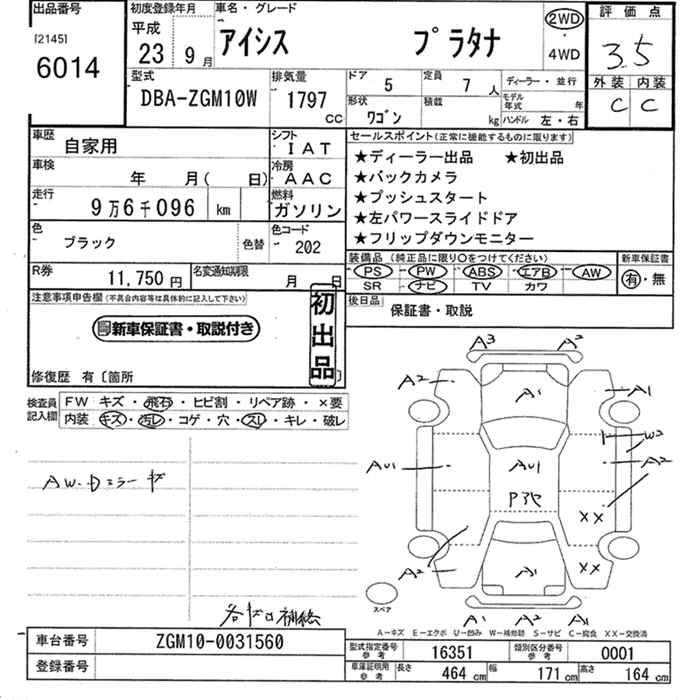 出品番号 初度登録年月 車名・グレード 評価点
[2145] 平成 アイシス プラタナ 2WD
6014 23 9月 ・ 4WD 3.5
型式 排気量 ドア 5 定員 7人 ディーラー・並行 外装 内装
DBA-ZGM10W 1797CC 形状 ワゴン 積載 kg モデル年式 年 C C
ハンドル 左・右
車歴 自家用 シフト IAT セールスポイント(正常に機能するものに限ります)
車検 年 月( 日) 冷房 AAC ★ディーラー出品 ★初出品
★バックカメラ
走行 9万6千096 km 燃料 ガソリン ★プッシュスタート
★左パワースライドドア
色 ブラック 色替 色コード 202 ★フリップダウンモニター
装備品(純正品に限り○をつけてください) 新車保証書
R券 11,750円 名変通知期限 月 日 PS PW ABS エアB AW 有・無
SR ナビ TV カワ
注意事項申告欄(不具合内容等は具体的に記入して下さい) 初出品 後日品 保証書・取説
新車保証書・取説付き
修復歴 有〔箇所 〕
検査員記入欄 FW キズ・飛石・ヒビ割・リペア跡・×要
内装 キズ・汚レ・コゲ・穴・スレ・キレ・破レ
A3 A2
A2 A1 A1
W2
AU1 AU1 A2
P
XX
A2 A1 XX
スペア
A1 A2 A1
A-キズ E-エクボ U-凹み W-補修跡 S-サビ C-腐食 XX-交換済
車台番号 ZGM10-0031560 型式指定番号 参考 16351 類別区分番号 参考 0001
登録番号 車庫証明用 参考 長さ 464cm 幅 171cm 高さ 164cm